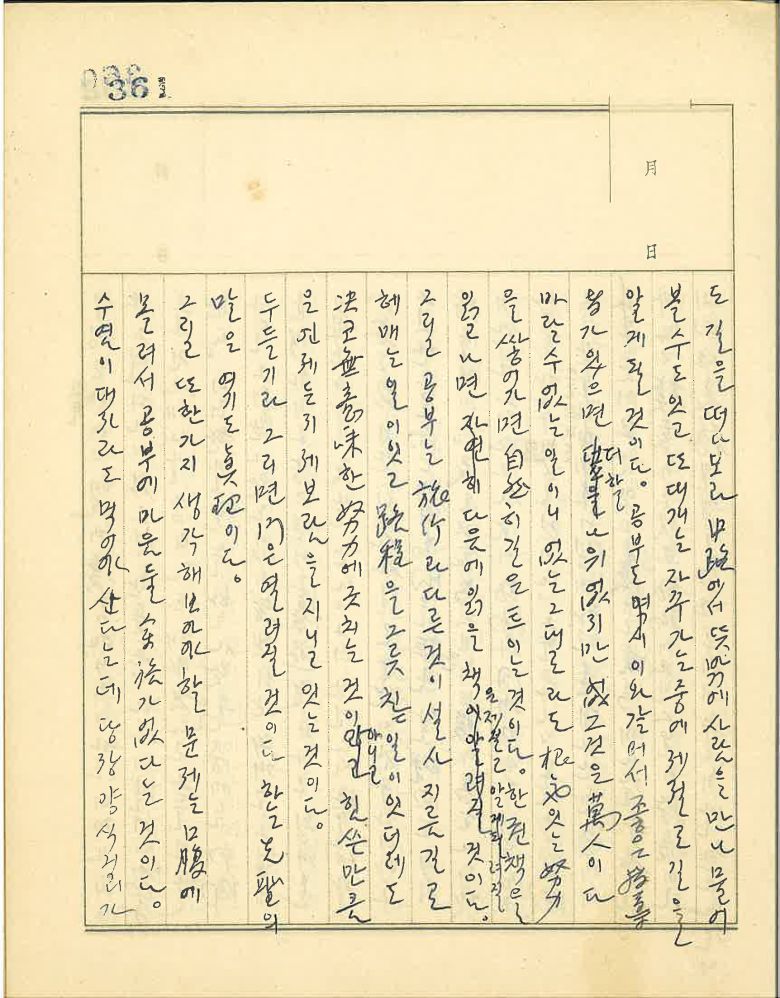 36
月
日
도 길을 떠나보라 中路에서 뜻밖에 사람을 만나 물어
볼수도 있고 또 대개는 자꾸가는 중에 제절로 길을
알게 될 것이다. 공부도 역시 이와 같어서 좋은
가 있으면 더할 나위 없지만 그것은 萬人이 다
바랄수 없는 일이니 없는 그대로라도 있는 努力
을 쌓어가면 自然히 길은 트이는 것이다. 한 권 책을
읽고 나면 자연히 다음에 읽을 책이 제절로 알려질 것이다.
그리고 공부는 旅行과 다른 것이 설사 지름길로
헤매는 일이 있고 路程을 그릇치는 일이 있더래도
決코 無意味한 努力에 긋치는 것이 아니고 힘쓴 만큼
은 언제든지 제보람을 지니고 있는 것이다.
두들기라 그러면 門은 열려질 것이다 하는 先聖의
말은 여기도 眞理이다.
그리고 또 한가지 생각해 보아야 할 문제는 口腹에
몰려서 공부에 마음 둘 余裕가 없다는 것이다.
수염이 대자라도 먹어야 산다는데 당장 양식거리가